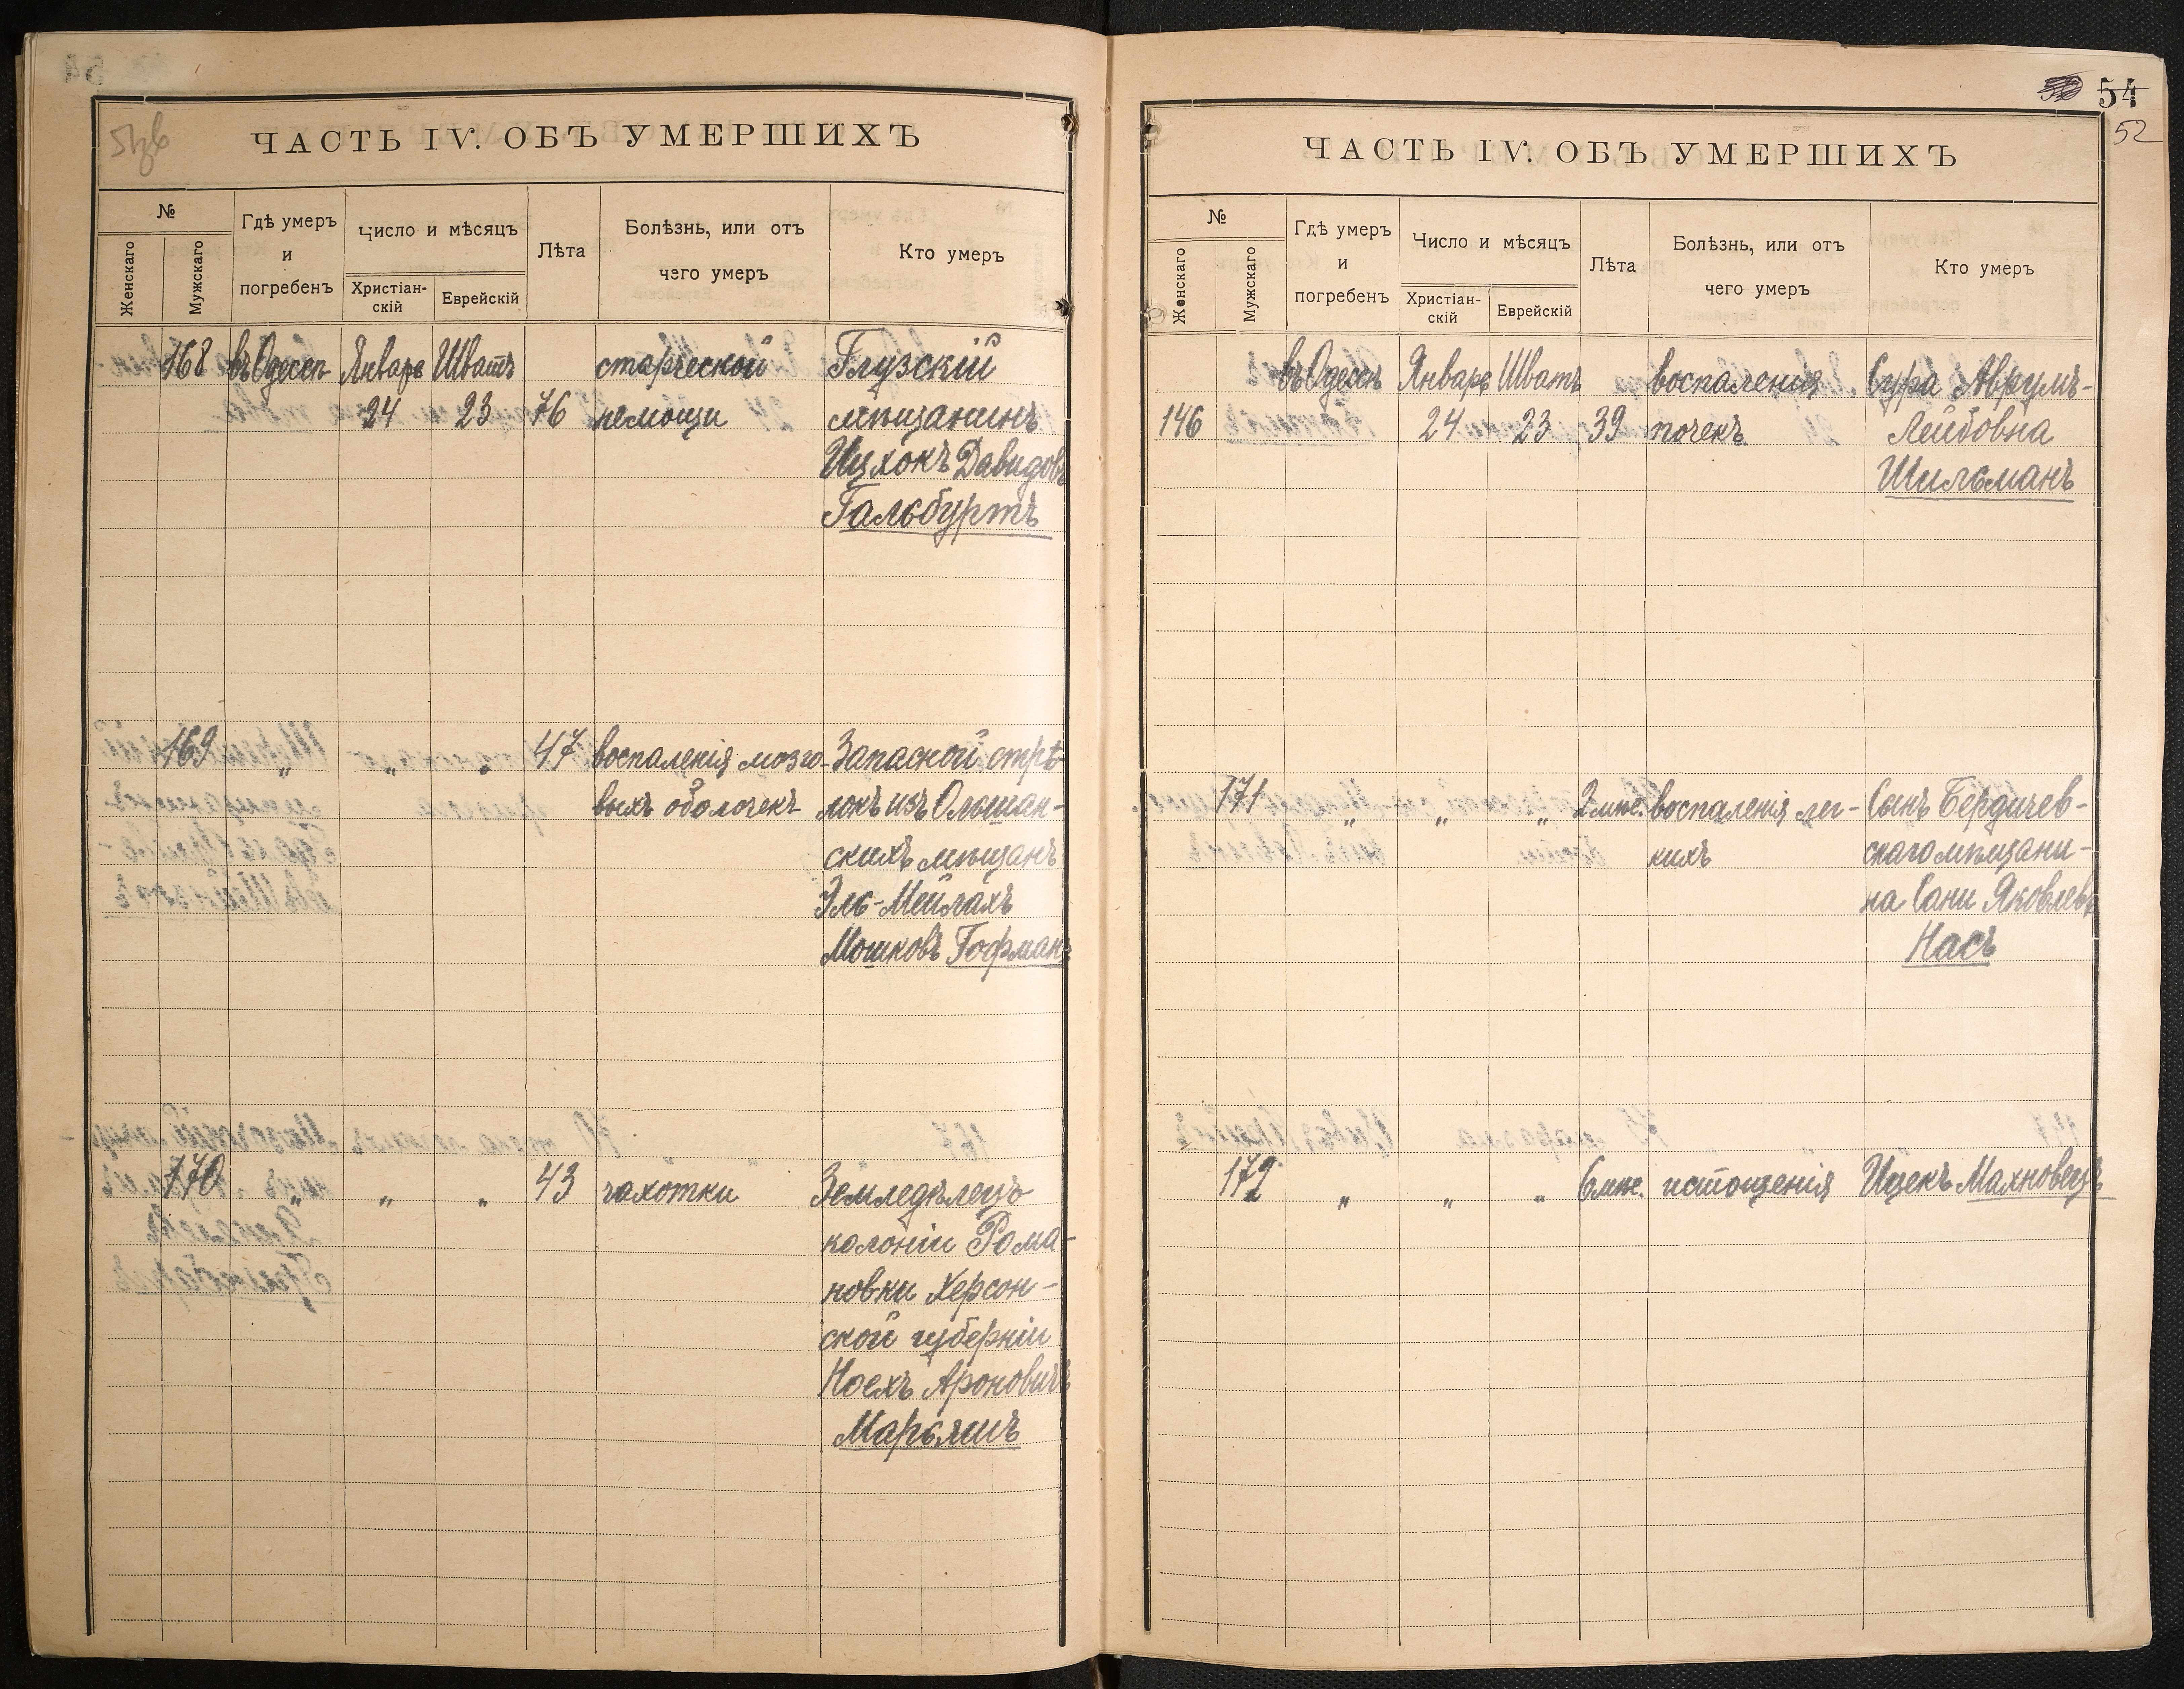 ЧАСТЬ IV. ОБЪ УМЕРШИХЪ
№
Женскаго
Мужскаго
Гдѣ умеръ
и
погребенъ
Число и мѣсяцъ
Христіан-
скій
Еврейскій
Лѣта
Болѣзнь, или отъ
чего умеръ
Кто умеръ
168 въ Одессѣ Январь Шватъ старческой Глузскій
24 23 76 немощи мѣщанинъ
Ицхокъ Давидовъ
Гальбуртъ
169 " " " 47 воспаленія мозго- Запасной стрѣ-
выхъ оболочекъ локъ изъ Ольшан-
скихъ мѣщанъ
Эль-Мейлахъ
Мошковъ Гофманъ
170 " " " 43 чахотки Земледѣлецъ
колоніи Рома-
новки Херсон-
ской губерніи
Ноехъ Ароновичъ
Марьяшъ
54
52
ЧАСТЬ IV. ОБЪ УМЕРШИХЪ
№
Женскаго
Мужскаго
Гдѣ умеръ
и
погребенъ
Число и мѣсяцъ
Христіан-
скій
Еврейскій
Лѣта
Болѣзнь, или отъ
чего умеръ
Кто умеръ
въ Одессѣ Январь Шватъ воспаленія Сура Аврумъ-
146 24 23 39 почекъ Лейбовна
Шильманъ
171 " " " 2 мѣс. воспаленія лег- Сынъ Бердичев-
кихъ скаго мѣщани-
на Сани Яковлева
Насъ
172 " " " 6 мѣс. истощенія Ицекъ Махновецъ